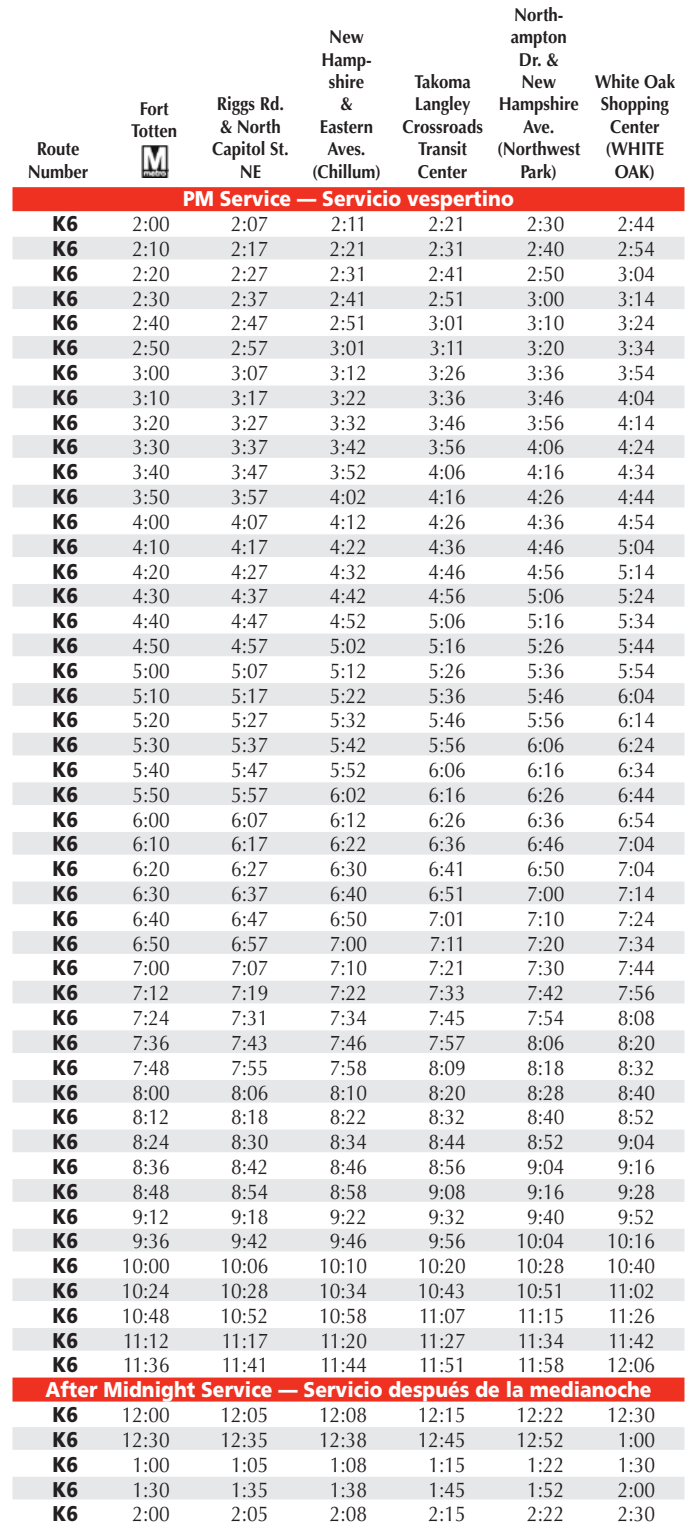 Route Number | Fort Totten M metro | Riggs Rd. & North Capitol St. NE | New Hamp-shire & Eastern Aves. (Chillum) | Takoma Langley Crossroads Transit Center | North-ampton Dr. & New Hampshire Ave. (Northwest Park) | White Oak Shopping Center (WHITE OAK)
PM Service — Servicio vespertino
K6 2:00 2:07 2:11 2:21 2:30 2:44
K6 2:10 2:17 2:21 2:31 2:40 2:54
K6 2:20 2:27 2:31 2:41 2:50 3:04
K6 2:30 2:37 2:41 2:51 3:00 3:14
K6 2:40 2:47 2:51 3:01 3:10 3:24
K6 2:50 2:57 3:01 3:11 3:20 3:34
K6 3:00 3:07 3:12 3:26 3:36 3:54
K6 3:10 3:17 3:22 3:36 3:46 4:04
K6 3:20 3:27 3:32 3:46 3:56 4:14
K6 3:30 3:37 3:42 3:56 4:06 4:24
K6 3:40 3:47 3:52 4:06 4:16 4:34
K6 3:50 3:57 4:02 4:16 4:26 4:44
K6 4:00 4:07 4:12 4:26 4:36 4:54
K6 4:10 4:17 4:22 4:36 4:46 5:04
K6 4:20 4:27 4:32 4:46 4:56 5:14
K6 4:30 4:37 4:42 4:56 5:06 5:24
K6 4:40 4:47 4:52 5:06 5:16 5:34
K6 4:50 4:57 5:02 5:16 5:26 5:44
K6 5:00 5:07 5:12 5:26 5:36 5:54
K6 5:10 5:17 5:22 5:36 5:46 6:04
K6 5:20 5:27 5:32 5:46 5:56 6:14
K6 5:30 5:37 5:42 5:56 6:06 6:24
K6 5:40 5:47 5:52 6:06 6:16 6:34
K6 5:50 5:57 6:02 6:16 6:26 6:44
K6 6:00 6:07 6:12 6:26 6:36 6:54
K6 6:10 6:17 6:22 6:36 6:46 7:04
K6 6:20 6:27 6:30 6:41 6:50 7:04
K6 6:30 6:37 6:40 6:51 7:00 7:14
K6 6:40 6:47 6:50 7:01 7:10 7:24
K6 6:50 6:57 7:00 7:11 7:20 7:34
K6 7:00 7:07 7:10 7:21 7:30 7:44
K6 7:12 7:19 7:22 7:33 7:42 7:56
K6 7:24 7:31 7:34 7:45 7:54 8:08
K6 7:36 7:43 7:46 7:57 8:06 8:20
K6 7:48 7:55 7:58 8:09 8:18 8:32
K6 8:00 8:06 8:10 8:20 8:28 8:40
K6 8:12 8:18 8:22 8:32 8:40 8:52
K6 8:24 8:30 8:34 8:44 8:52 9:04
K6 8:36 8:42 8:46 8:56 9:04 9:16
K6 8:48 8:54 8:58 9:08 9:16 9:28
K6 9:12 9:18 9:22 9:32 9:40 9:52
K6 9:36 9:42 9:46 9:56 10:04 10:16
K6 10:00 10:06 10:10 10:20 10:28 10:40
K6 10:24 10:28 10:34 10:43 10:51 11:02
K6 10:48 10:52 10:58 11:07 11:15 11:26
K6 11:12 11:17 11:20 11:27 11:34 11:42
K6 11:36 11:41 11:44 11:51 11:58 12:06
After Midnight Service — Servicio después de la medianoche
K6 12:00 12:05 12:08 12:15 12:22 12:30
K6 12:30 12:35 12:38 12:45 12:52 1:00
K6 1:00 1:05 1:08 1:15 1:22 1:30
K6 1:30 1:35 1:38 1:45 1:52 2:00
K6 2:00 2:05 2:08 2:15 2:22 2:30